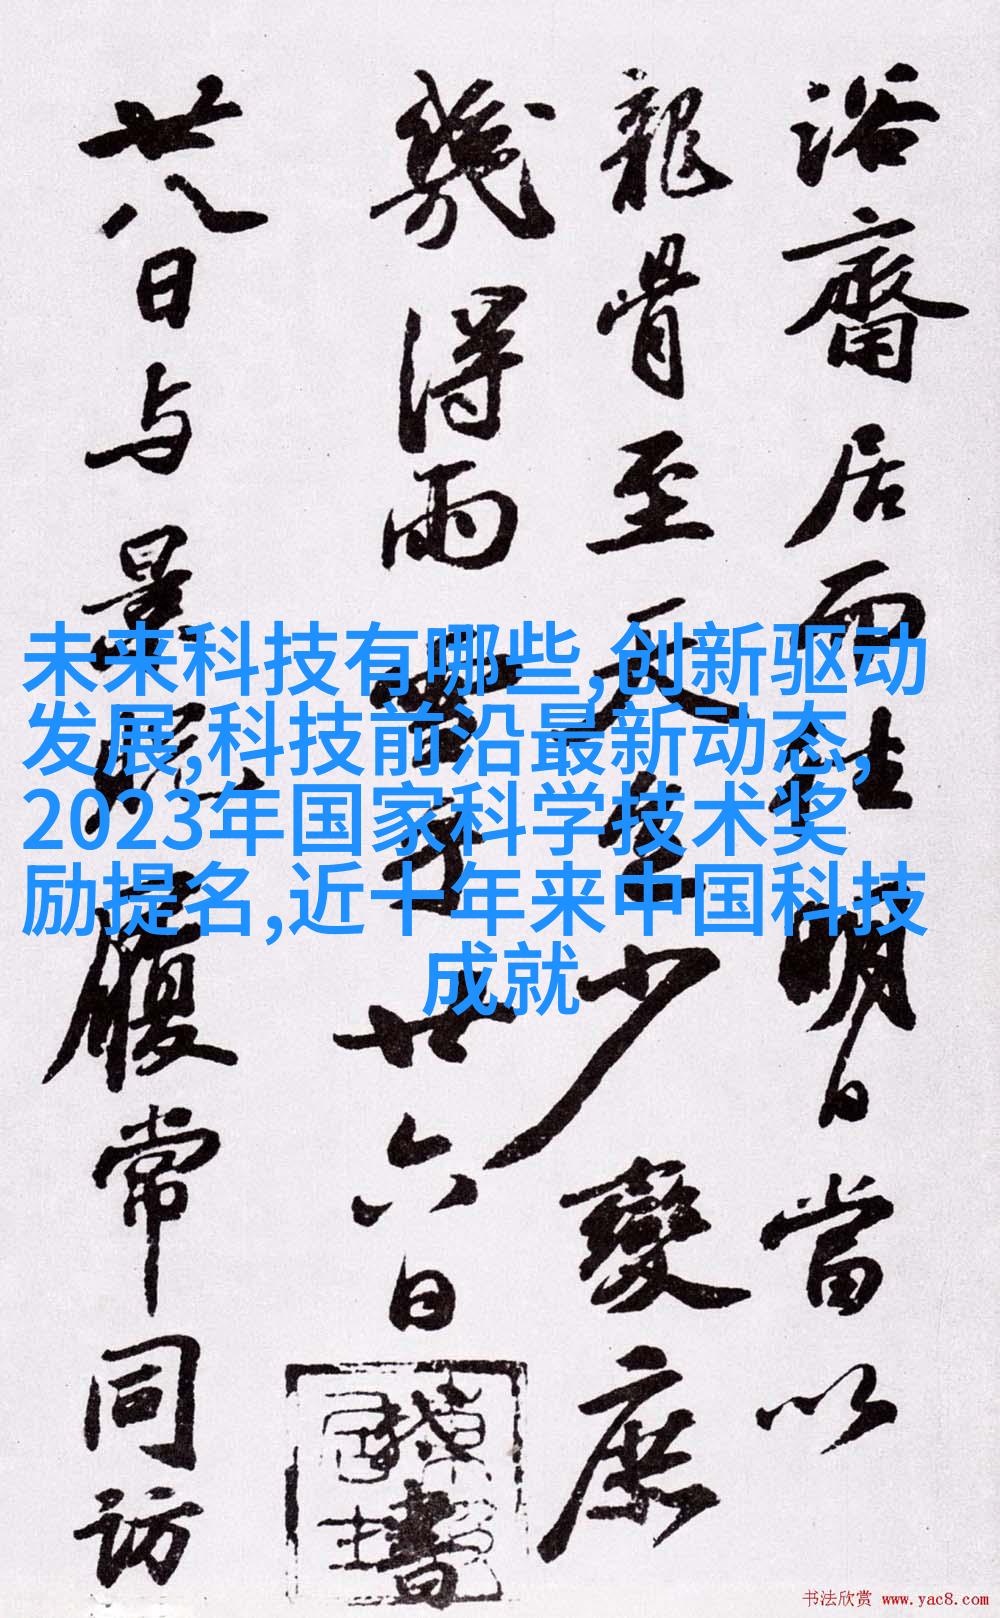 浴齋居而明日當以
龍骨至天色少變庶
幾得雨雪乎廿六日書
廿八日与景履常同訪
未来科技有哪些,创新驱动
发展,科技前沿最新动态,
2023年国家科学技术奖
励提名,近十年来中国科技
成就
书法欣赏 www.yac8.com